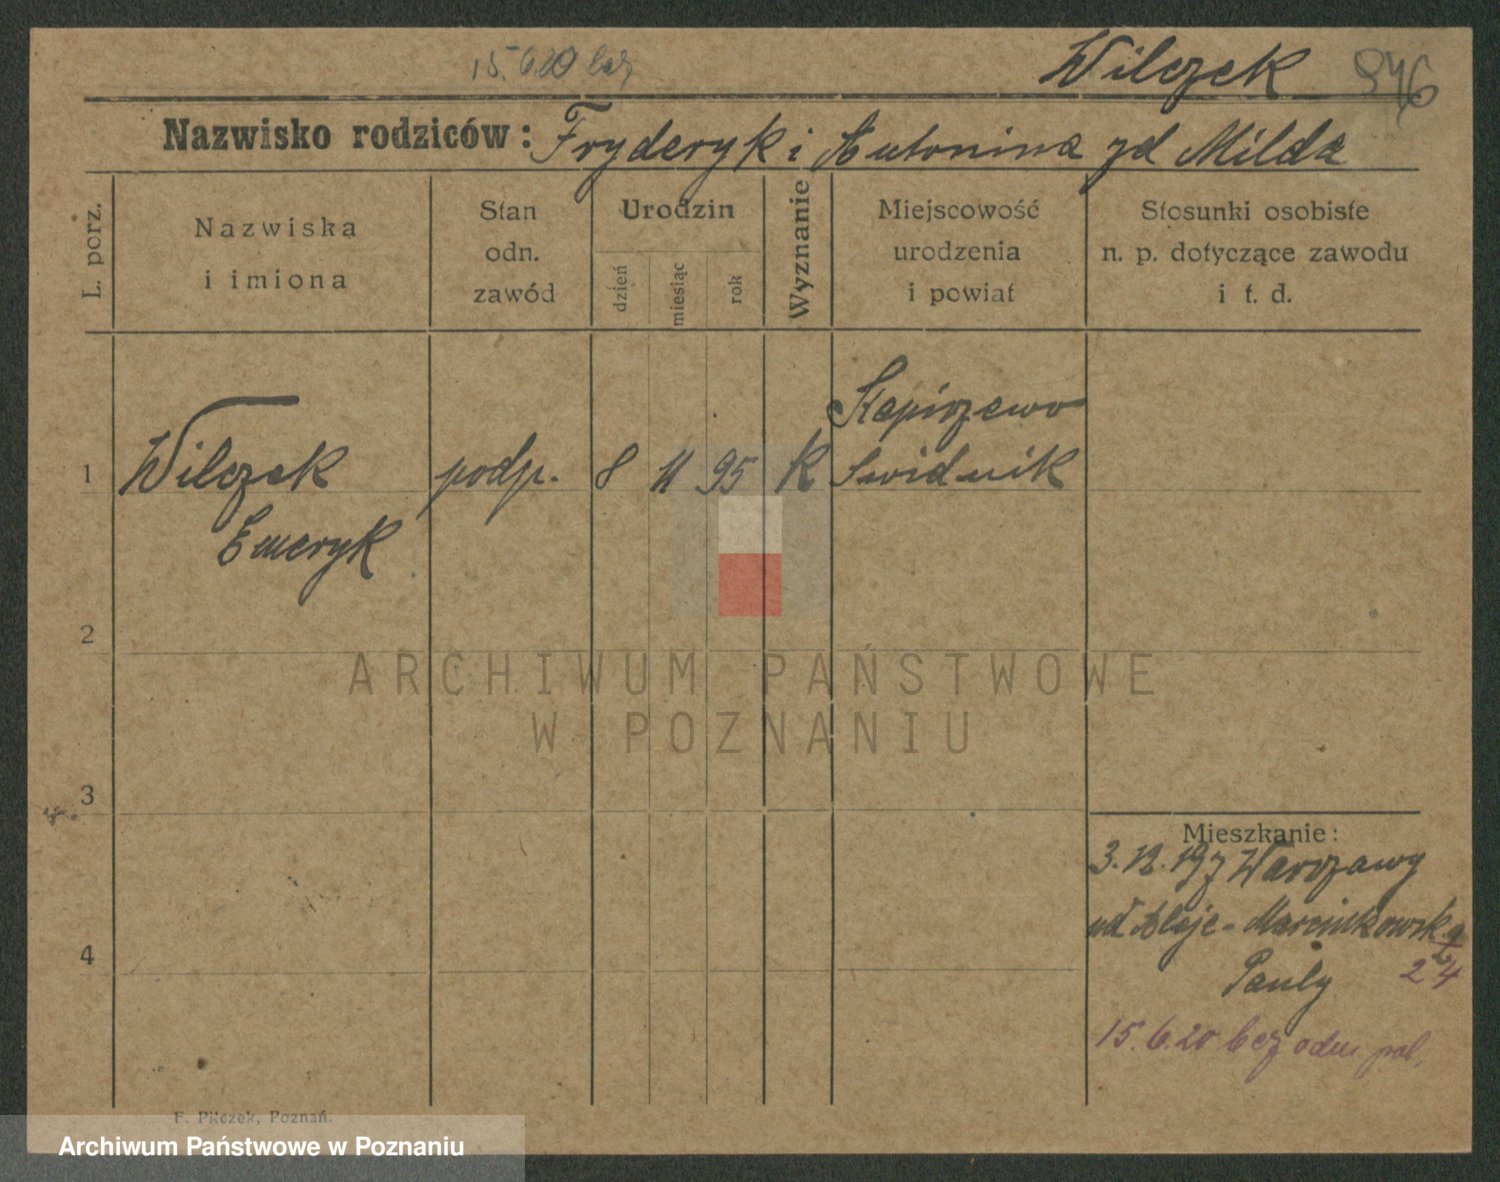 15.6.20 bez
Wilczek 846
Nazwisko rodziców: Fryderyk i Antonina zd Milda
L. porz.
Nazwiska
i imiona
Stan
odn.
zawód
Urodzin
dzień
miesiąc
rok
Wyznanie
Miejscowość
urodzenia
i powiat
Stosunki osobiste
n. p. dotyczące zawodu
i t. d.
1 Wilczek podp. 8 11 95 k Swidnik
Emeryk
2
3
4
Mieszkanie:
3.12.19 z Warszawy
Aleje - Marcinkowsk
9
24
Pauly
15.6.20 bez odm. pol.
F. Pilczek, Poznań.
ARCHIWUM PAŃSTWOWE
W POZNANIU
Archiwum Państwowe w Poznaniu